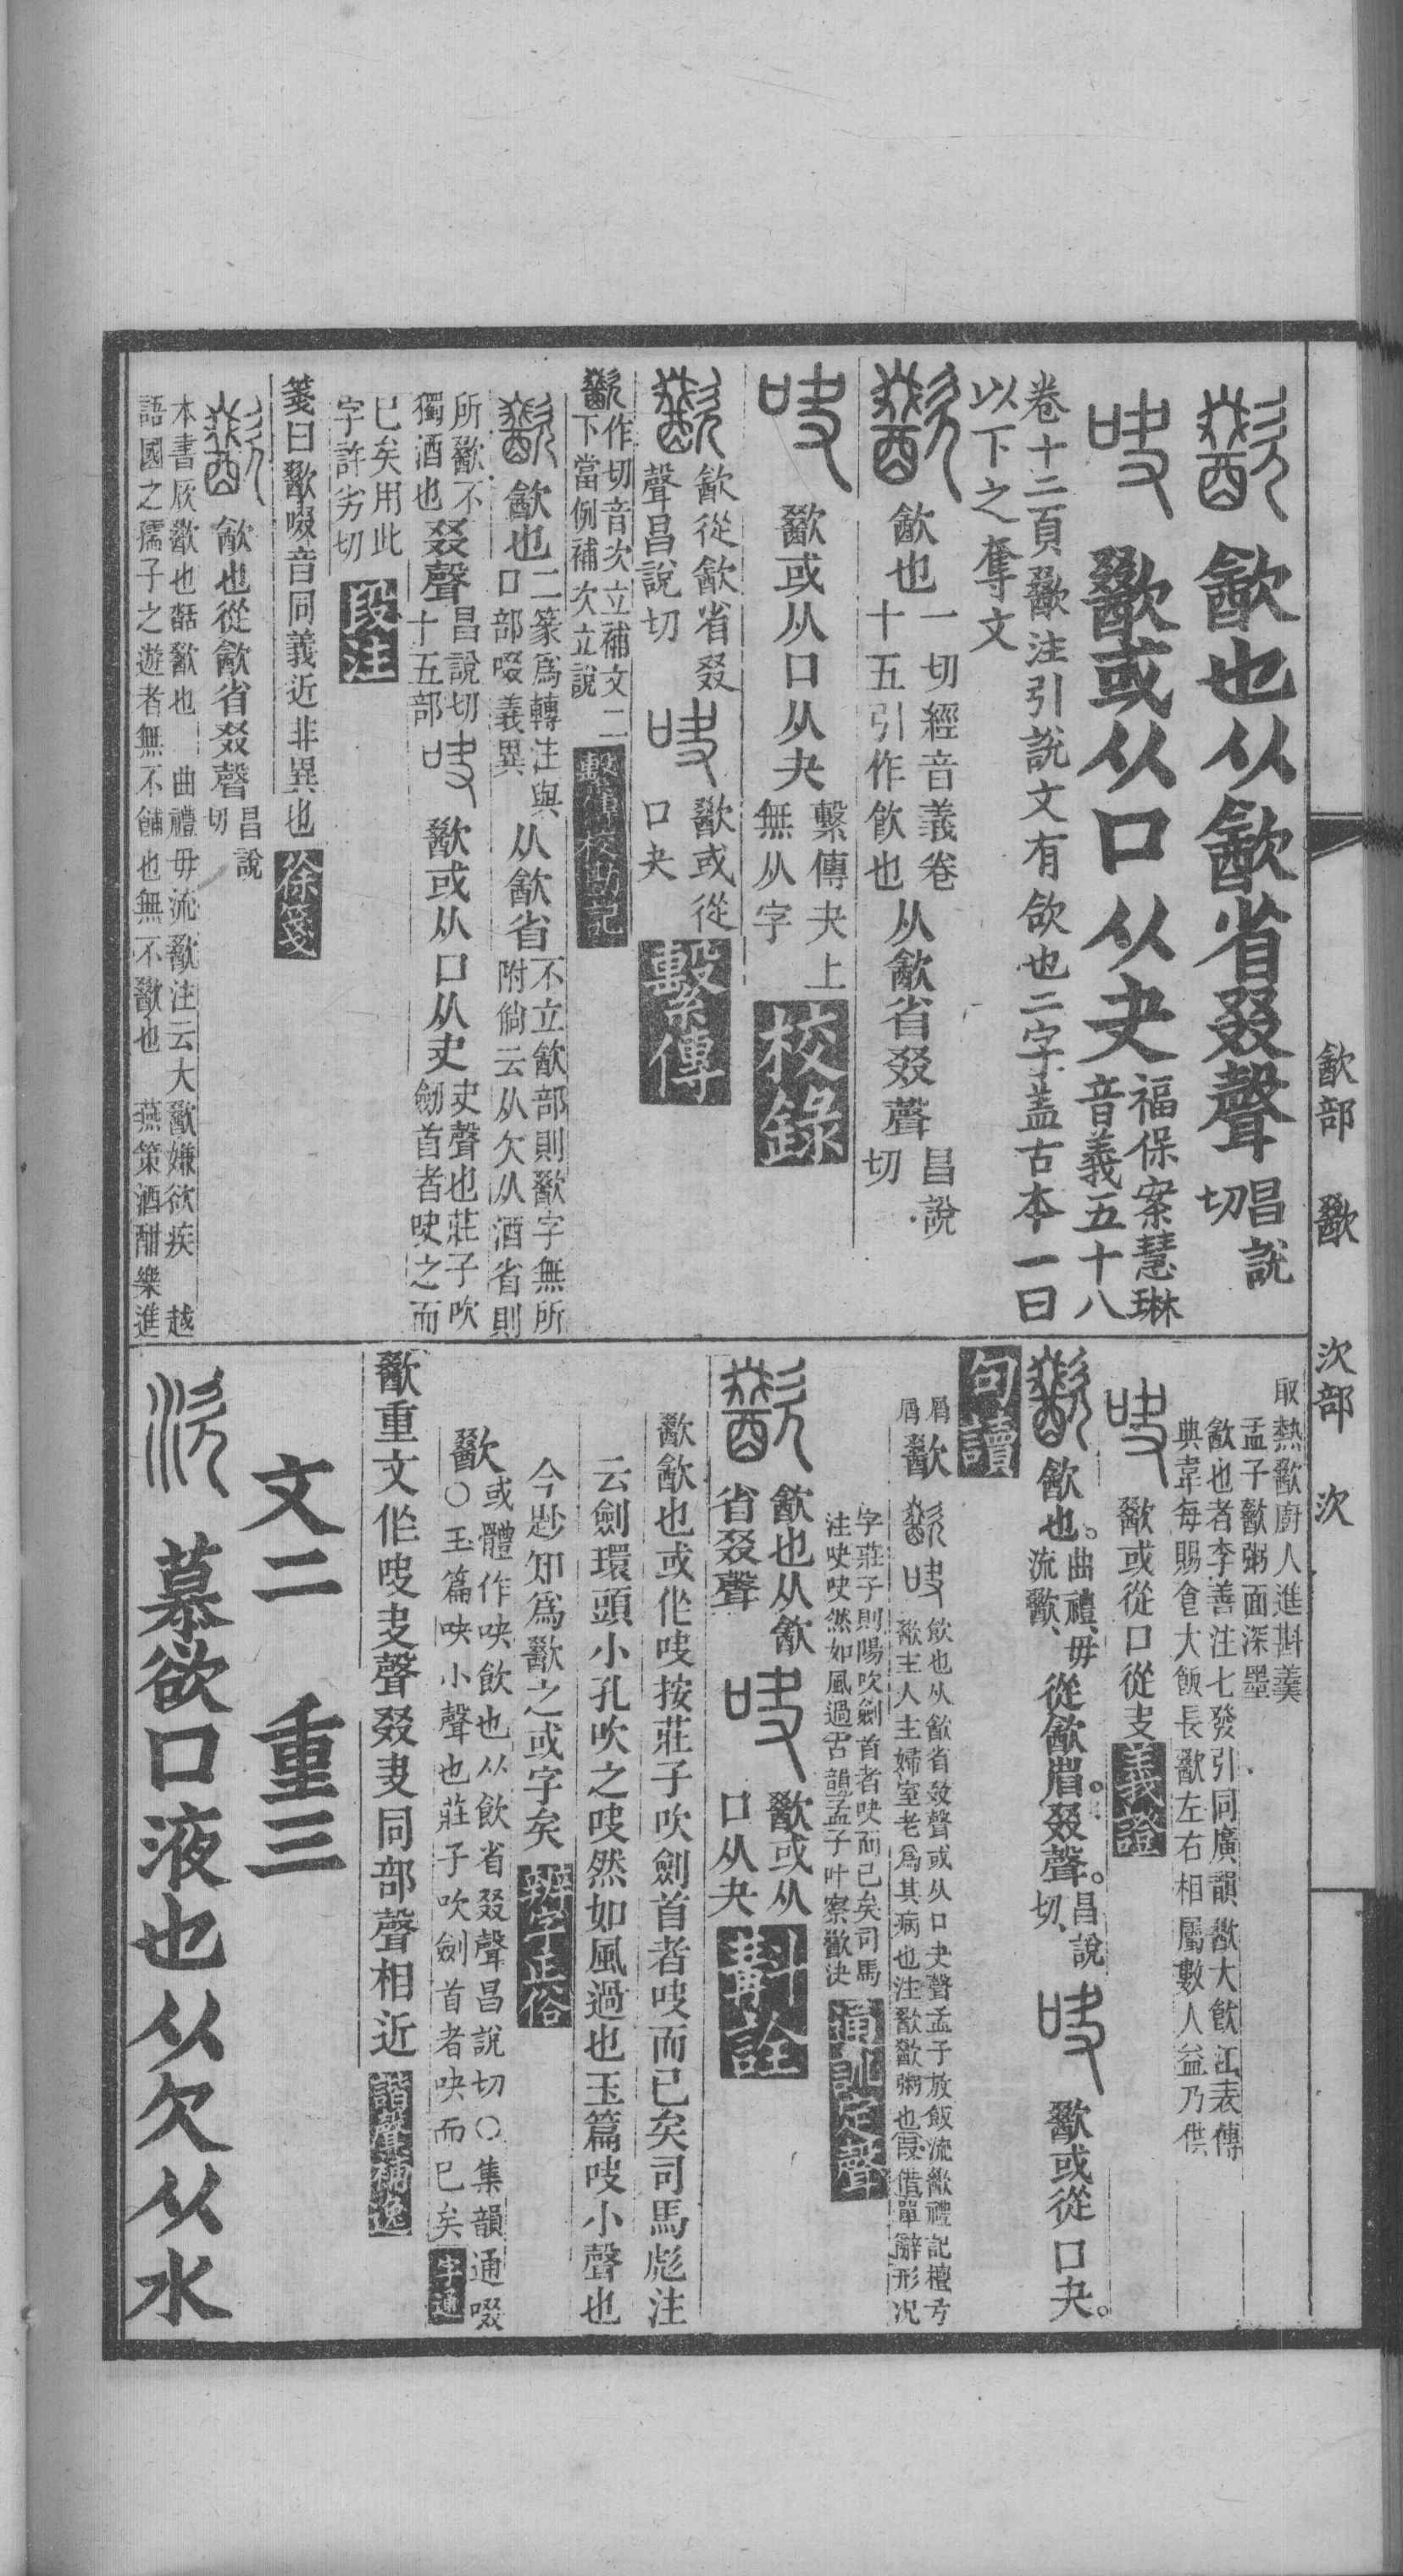 㱃部　歠　㳄部　㳄
歠 㱃也从㱃省叕聲
昌說
切
吷 歠或从口从夬
福保案慧琳
音義五十八
卷十二頁歠注引說文有飲也二字蓋古本一曰
以下之奪文
歠 㱃也
一切經音義卷
十五引作飮也
从㱃省叕聲
昌說
切
吷 歠或从口从夬
繫傳夬上
無从字
校錄
歠
㱃從㱃省叕
聲昌說切
吷
歠或從
口夬
繫傳
歠
作切音次立補文二
下當例補次立說
繫傳校勘記
歠 㱃也
二篆爲轉注與
口部啜義異
从㱃省
不立㱃部則歠字無所
附倘云从欠从酒省則
所歠不
獨酒也
叕聲
昌說切
十五部
吷 歠或从口从夬
夬聲也莊子吹
劒首者吷之而
已矣用此
字許劣切
段注
箋曰歠啜音同義近非異也
徐箋
歠 㱃也從㱃省叕聲
昌說
切
本書㕒歠也䶀歠也　曲禮毋流歠注云大歠嫌欲疾　越
語國之孺子之遊者無不餔也無不歠也　燕策酒酣樂進
取熱歠廚人進斟羹
孟子歠粥面深墨
㱃也者李善注七發引同廣韻歠大飮江表傳
典韋每賜食大飯長歠左右相屬數人益乃供
吷 歠或從口從夬
義證
歠 㱃也。
曲禮、毋
流歠、
從㱃省。叕聲。
昌說
切、
吷 歠或從口夬。
句讀
屑
屑
歠 歠 吷
飮也从㱃省叕聲或从口夬聲孟子放飯流歠禮記檀弓
歠主人主婦室老爲其病也注歠歠粥也叚借單辭形况
字莊子則陽吹劍首者吷而已矣司馬
注吷吷然如風過古韻孟子叶察歠決
通訓定聲
歠
㱃也从㱃
省叕聲
吷
歠或从
口从夬
斠詮
歠㱃也或作吷按莊子吹劍首者吷而已矣司馬彪注
云劍環頭小孔吹之吷然如風過也玉篇吷小聲也
今尟知爲歠之或字矣
辨字正俗
歠
或體作吷飲也从飲省叕聲昌說切○集韻通啜
○玉篇吷小聲也莊子吹劍首者吷而已矣
字通
歠重文作吷夬聲叕夬同部聲相近
諧聲補逸
文二　重三
㳄 慕欲口液也从欠从水